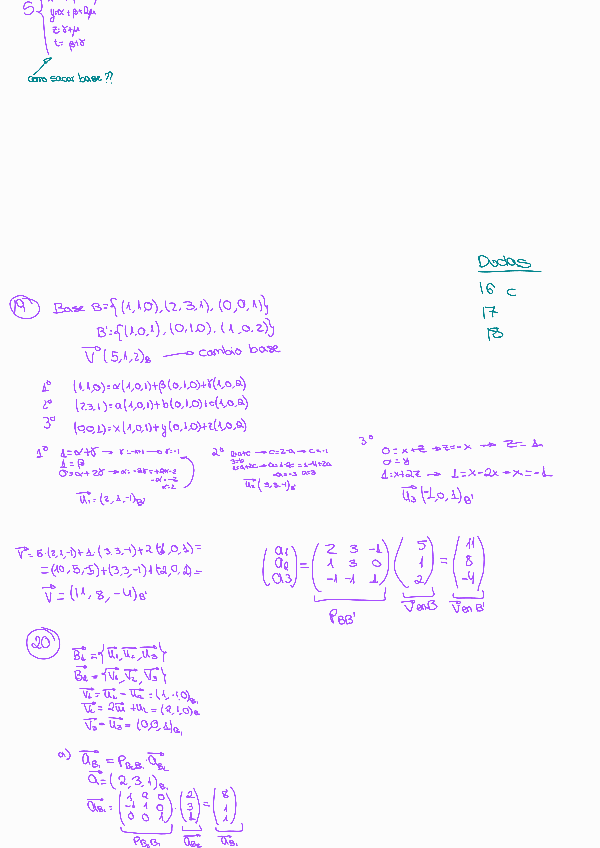 S
y=α+β+2μ
z=γ+μ
t= β+γ
como sacar base??
Dudas
16 c
17
18
19 Base B={(1,1,0),(2,3,1),(0,0,1)}
B'={(1,0,1),(0,1,0),(1,0,2)}
V(5,1,2)B → cambio base
1º (1,1,0)=α(1,0,1)+β(0,1,0)+γ(1,0,2)
2º (2,3,1)=a(1,0,1)+b(0,1,0)+c(1,0,2)
3º (0,0,1)=x(1,0,1)+y(0,1,0)+z(1,0,2)
1º 1=α+γ
1=β
0=α+2γ
α=2
u1=(2,1,-1)B'
2º
3=b
u2(3,3,-1)B'
3º 0=x+z → z=-x → z=1
0=y
1=x+2z → 1=x-2x → x=-1
u3(-1,0,1)B'
V=5·(2,1,-1)+1·(3,3,-1)+2(-1,0,1)=
=(10,5,-5)+(3,3,-1)+(-2,0,2)=
V=(11,8,-4)B'
a1 2 3 -1 5 11
a2 = 1 3 0 1 = 8
a3 -1 -1 1 2 -4
PBB' V en B V en B'
20
B1={u1,u2,u3}
B2={V1,V2,V3}
V1=u1-u2=(1,-1,0)B1
V2=2u1+u2=(2,1,0)B1
V3=u3=(0,0,1)B1
a) aB1=PB2B1·aB2
a=(2,3,1)B2
1 2 0 2 8
aB1= -1 1 0 · 3 = 1
0 0 1 1 1
PB2B1 aB2 aB1